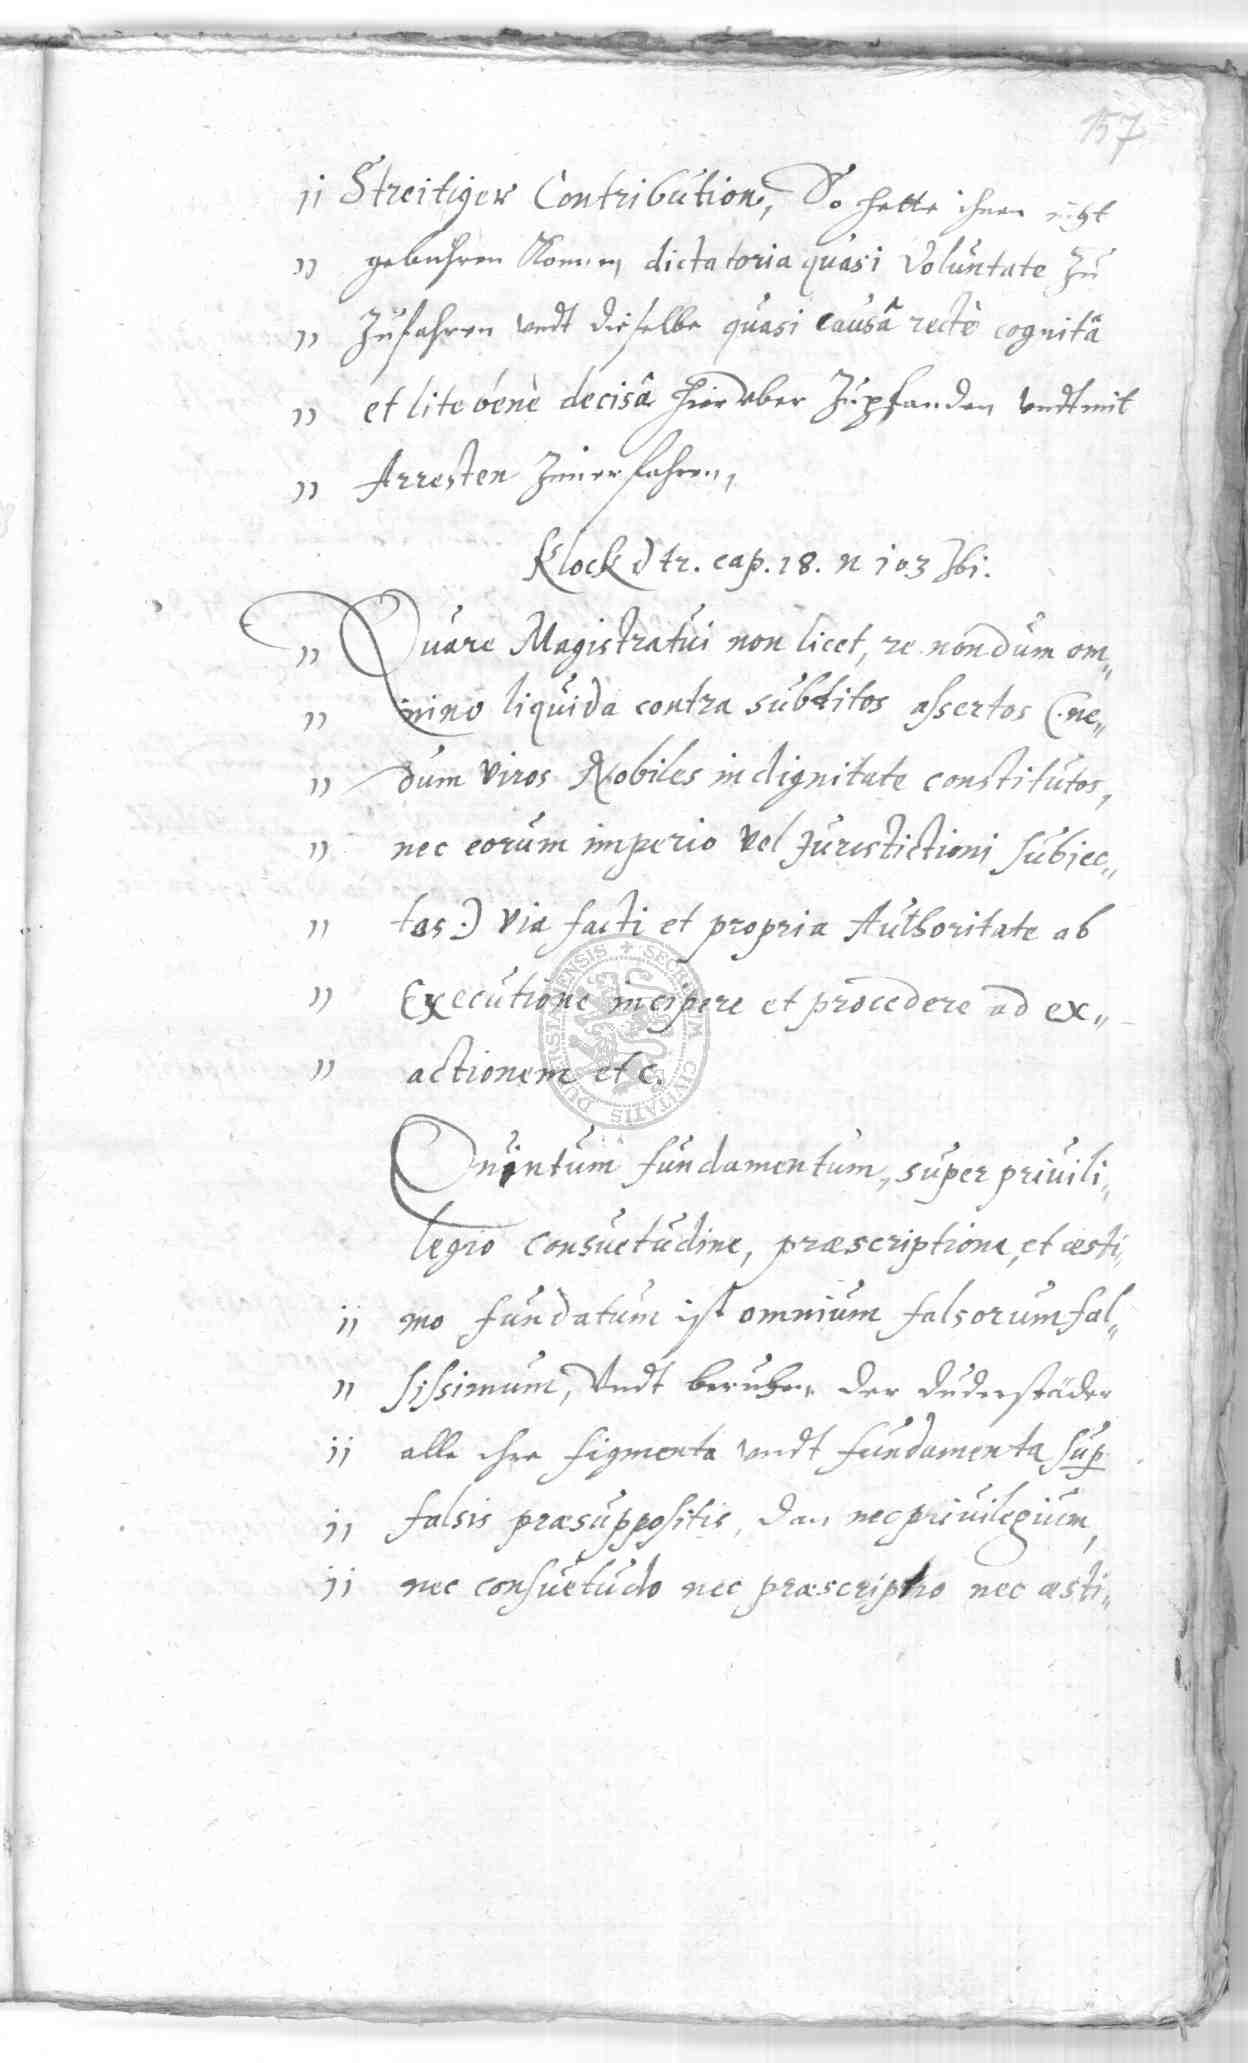 157
" Streitiger Contribution, So hette ihnen nicht
" gebuhren können dictatoria quasi Voluntate zu
" Zufahren undt dieselbe quasi causâ rectè cognitâ
" et lite benè decisâ hierüber Zupfanden undt mit
" Arresten Zuuerfahren,
Klock d tr. cap. 18. n 103 ibi.
" Quare Magistratui non licet, re nondum om„
" nino liquida contra subditos assertos (: ne„
" dum viros Nobiles in dignitate constitutos,
" nec eorum imperio vel Jurisdictioni subiec„
" tos :) via facti et propria Authoritate ab
" Executione incipere et procedere ad ex„
" actionem etc.
Quintum fundamentum, super priuili„
legio consuetudine, præscriptione, et æsti„
" mo fundatum ist omnium falsorum fal„
" sissimum, Undt beruhen der duderstäder
" alle ihre figmenta undt fundamenta sup
" falsis præsuppositis, dan nec priuilegium,
" nec consuetudo nec præscriptio nec æsti„
SECRETUM CIVITATIS DUDERSTADENSIS